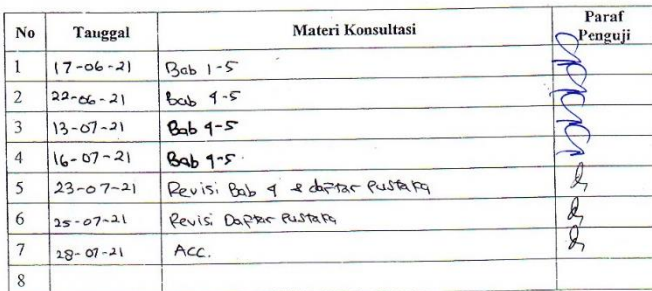 No Tanggal Materi Konsultasi Paraf Penguji
1 17-06-21 Bab 1-5
2 22-06-21 Bab 4-5
3 13-07-21 Bab 4-5
4 16-07-21 Bab 4-5
5 23-07-21 Revisi Bab 4 & daftar Pustaka
6 25-07-21 Revisi Daftar Pustaka
7 28-07-21 Acc.
8